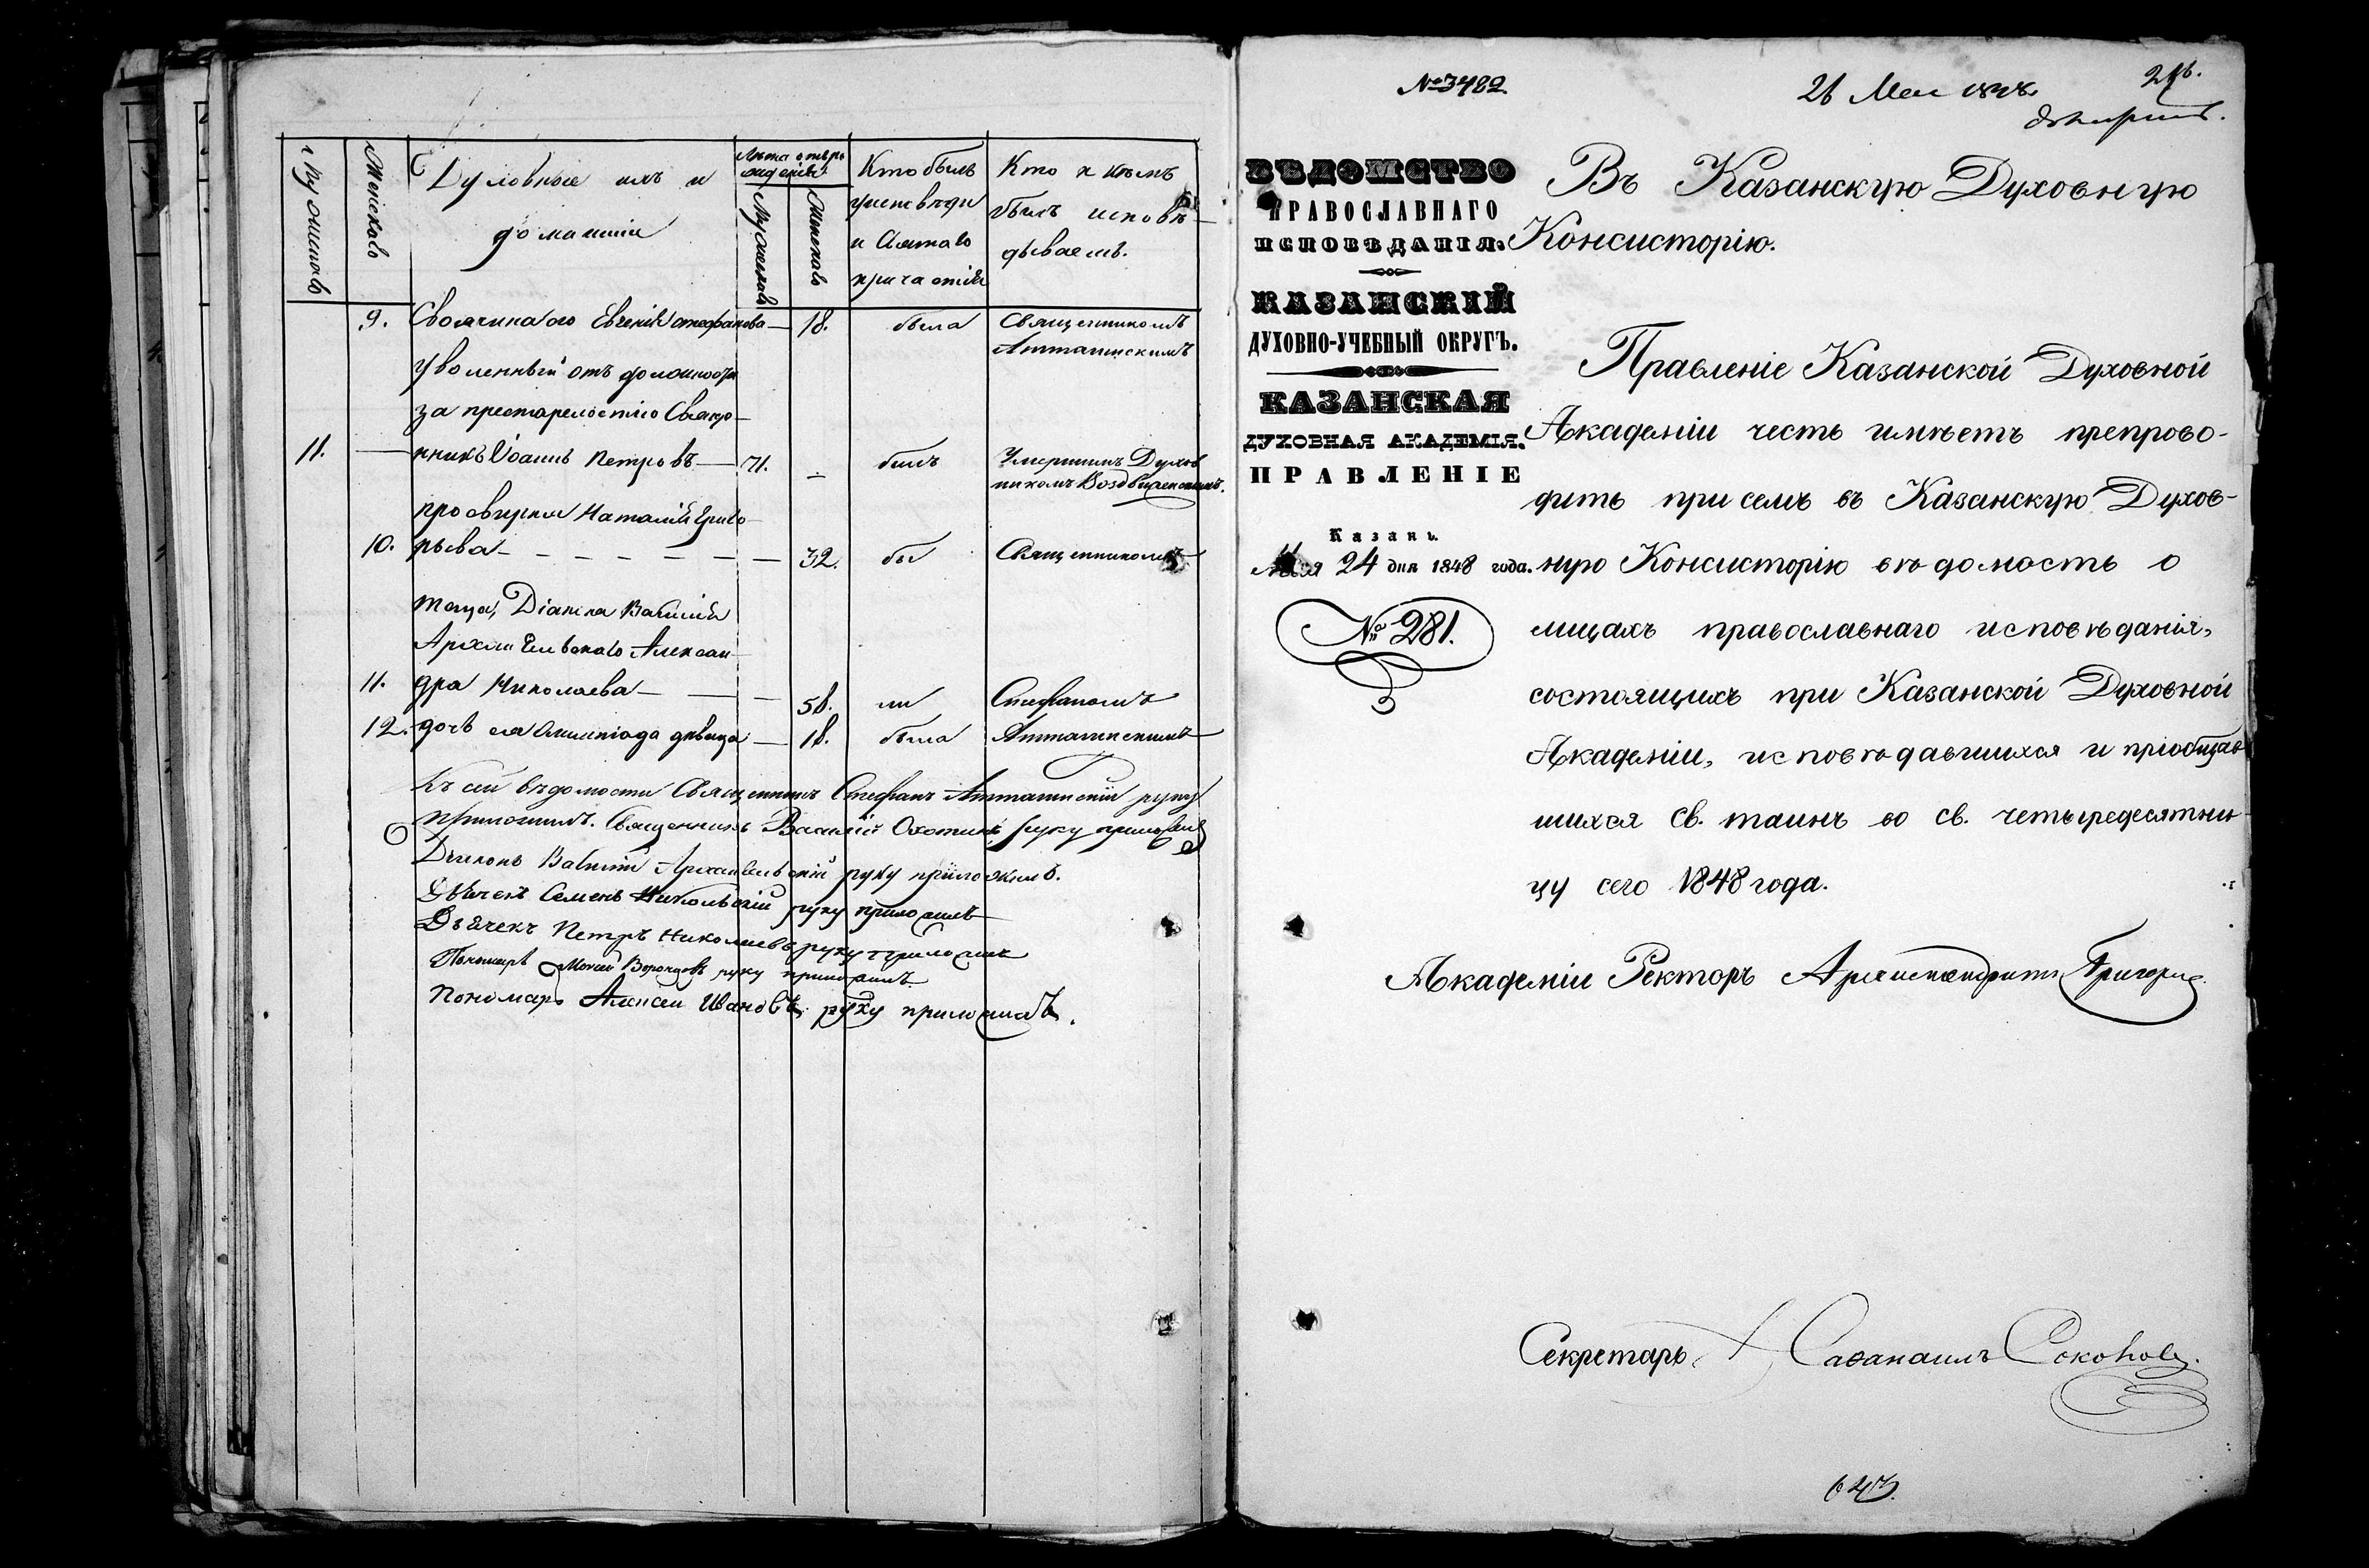 Мужеска
Женска
Духовные ихъ и
домашніе
Лѣта отъ рожденія
Мужеска
Женска
Кто былъ
у исповѣди
и Святаго
причастія
Кто и кѣмъ
былъ исповѣ-
дываемъ.
9. Своячина его Евгенія Стефанова — 18. была Священникомъ
Аттатинскимъ
уволенный отъ должности
за престарелостію Священ-
11. — нникъ Іоаннъ Петровъ — 71. - былъ Умершимъ Духов
никомъ Воздвиженскимъ.
просвирня Наталія Григо-
10. рьева — 32. бы Священникомъ
теща, Діакона Василія
Архангельскаго Алексан-
11. дра Николаева — 58. ли Стефаномъ
12. дочь ея Олимпіада дѣвица — 18. была Аттатинскимъ
Къ сей вѣдомости Священникъ Стефанъ Аттатинскій руку
приложилъ. Священникъ Василій Охотинъ руку приложилъ
Діаконъ Василій Архангельскій руку приложилъ.
Дьячекъ Семенъ Никольскій руку приложилъ
Дьячекъ Петръ Николаевъ руку приложилъ
Пономарь Моисей Воронцовъ руку приложилъ
Пономарь Алексей Ивановъ руку приложилъ.
№ 3482.
26 Мая 1848.
ВѢДОМСТВО
ПРАВОСЛАВНАГО
ИСПОВѢДАНІЯ.
КАЗАНСКІЙ
ДУХОВНО-УЧЕБНЫЙ ОКРУГЪ.
КАЗАНСКАЯ
ДУХОВНАЯ АКАДЕМІЯ.
ПРАВЛЕНІЕ
Казань.
Мая 24 дня 1848 года.
№ 281.
Въ Казанскую Духовную
Консисторію.
Правленіе Казанской Духовной
Академіи честь имѣетъ препрово-
дить при семъ въ Казанскую Духов-
ную Консисторію вѣдомость о
лицахъ православнаго исповѣданія,
состоящихъ при Казанской Духовной
Академіи, исповѣдавшихся и пріобщав
шихся св. таинъ во св. четыредесятни-
цу сего 1848 года.
Академіи Ректоръ Архимандритъ Григорій.
Секретарь Наѳанаилъ Соколовъ.
643.